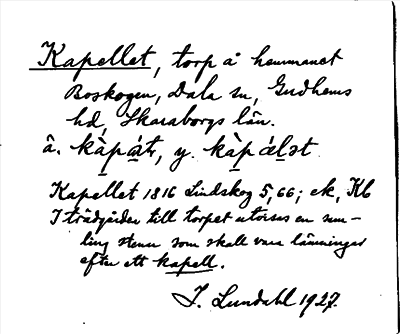 Kapellet, torp å hemmanet
Boskogen, Dala sn, Gudhems
hd, Skaraborgs län.
ä. kàpát, y. kàpálət
Kapellet 1816 Lindskog 5,66; ek, Kb
I trädgården till torpet utvisas en sam-
ling stenar som skall vara lämningar
efter ett kapell.
I. Lundahl 1927.